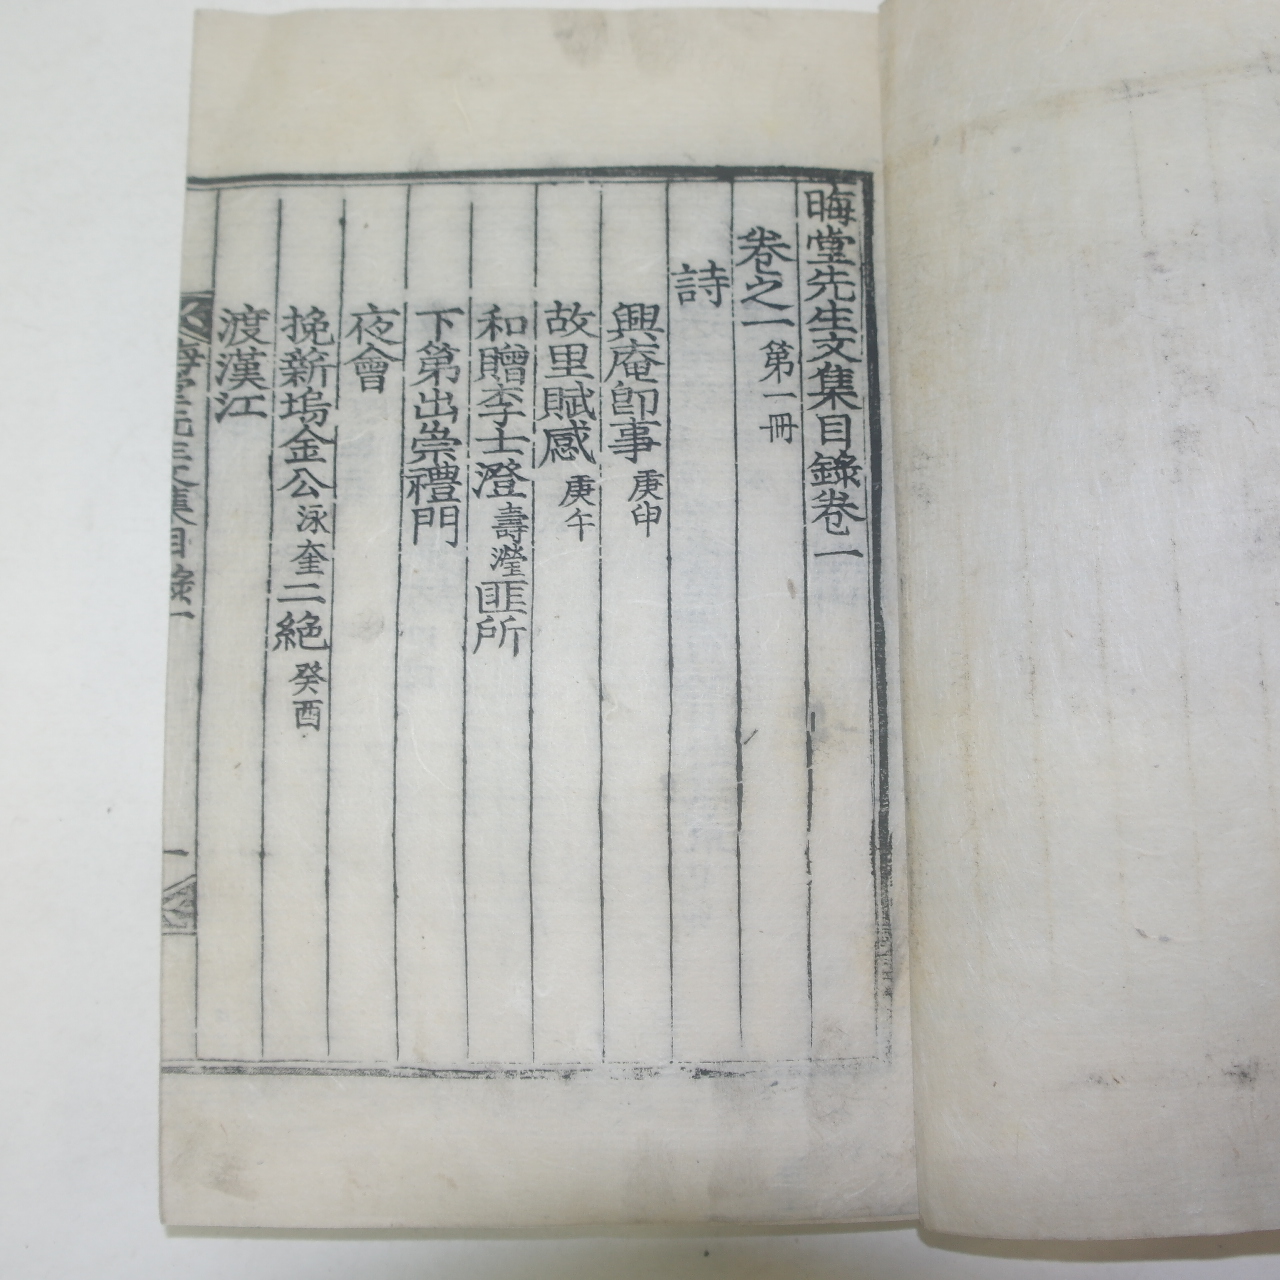 晦堂先生文集目錄卷一
卷之一 第一冊
詩
興庵卽事 庚申
故里賦感 庚午
和贈李士澄 壽瀅 匪所
下第出崇禮門
夜會
挽新塢金公 泳奎 二絶 癸酉
渡漢江
晦堂先生文集目錄一
一